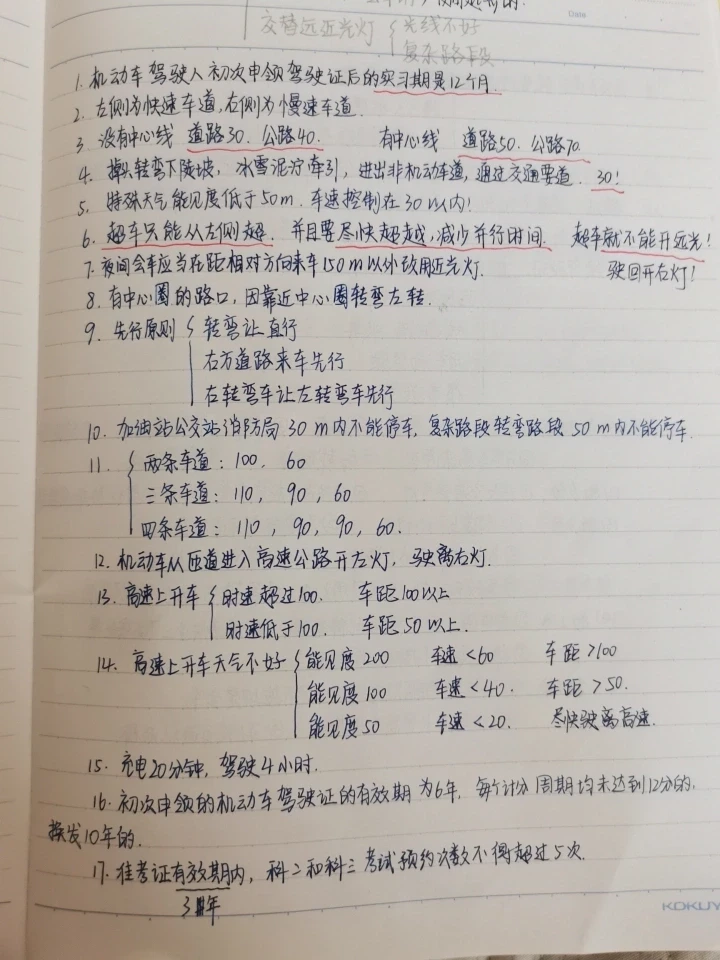 交替远近光灯 { 光线不好
复杂路段
Date
1. 机动车驾驶人初次申领驾驶证后的实习期是12个月.
2. 左侧为快速车道,右侧为慢速车道.
3. 没有中心线 道路30. 公路40. 有中心线 道路50. 公路70.
4. 掉头转弯下陡坡, 冰雪泥泞牵引, 进出非机动车道, 通过交通要道. 30!
5. 特殊天气能见度低于50m. 车速控制在30以内!
6. 超车只能从左侧超. 并且要尽快超越,减少并行时间. 超车就不能开远光!
7. 夜间会车应当在距相对方向来车150m以外改用近光灯. 驶回开右灯!
8. 有中心圈的路口, 因靠近中心圈转弯左转.
9. 先行原则 { 转弯让直行
右方道路来车先行
右转弯车让左转弯车先行
10. 加油站公交站消防局30m内不能停车, 复杂路段转弯路段50m内不能停车.
11. { 两条车道: 100, 60
三条车道: 110, 90, 60
四条车道: 110, 90, 90, 60.
12. 机动车从匝道进入高速公路开左灯, 驶离右灯.
13. 高速上开车 { 时速超过100. 车距100以上
时速低于100. 车距50以上.
14. 高速上开车天气不好 { 能见度200 车速<60 车距>100
能见度100 车速<40. 车距>50.
能见度50 车速<20. 尽快驶离高速.
15. 充电20分钟, 驾驶4小时.
16. 初次申领的机动车驾驶证的有效期为6年, 每个计分周期均未达到12分的,
换发10年的.
17. 准考证有效期内, 科二和科三考试预约次数不得超过5次.
3年
KOKUY